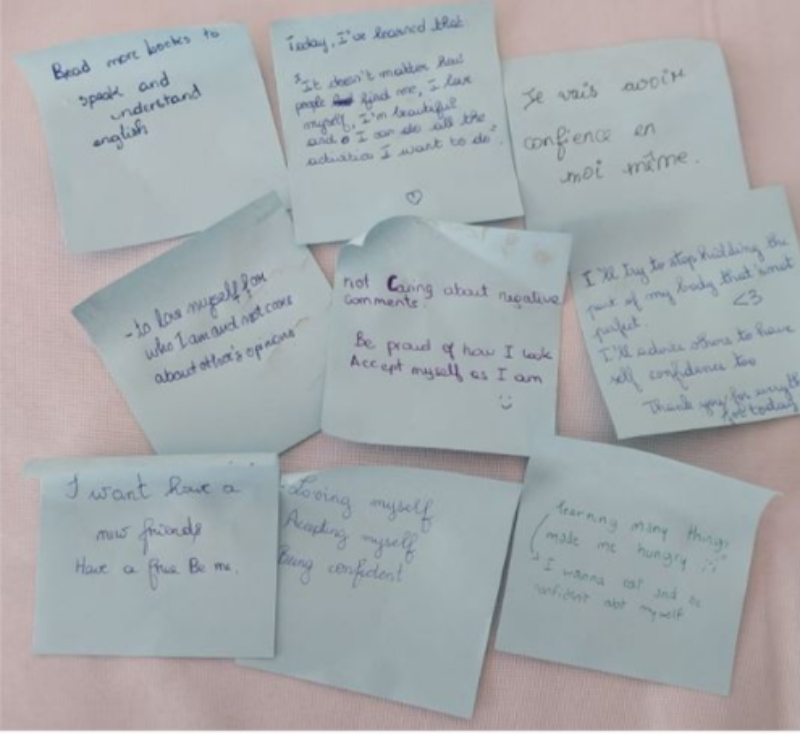 Read more books to
speak and
understand
english
Today, I've learned that
"It doesn't matter how
people find me, I love
myself, I'm beautiful
and I can do all the
activities I want to do".
Je vais avoir
confience en
moi même.
- to love myself for
who I am and not care
about other's opinions
not Caring about negative
comments.
Be proud of how I look
Accept myself as I am
I'll try to stop hidding the
part of my body that's not
perfect. <3
I'll advice others to have
self confidence too
Thank you for
for today
I want have a
new friends
Have a free Be me.
- Loving myself
Accepting myself
Being confident
learning many things
made me hungry
I wanna eat and be
confident abt myself